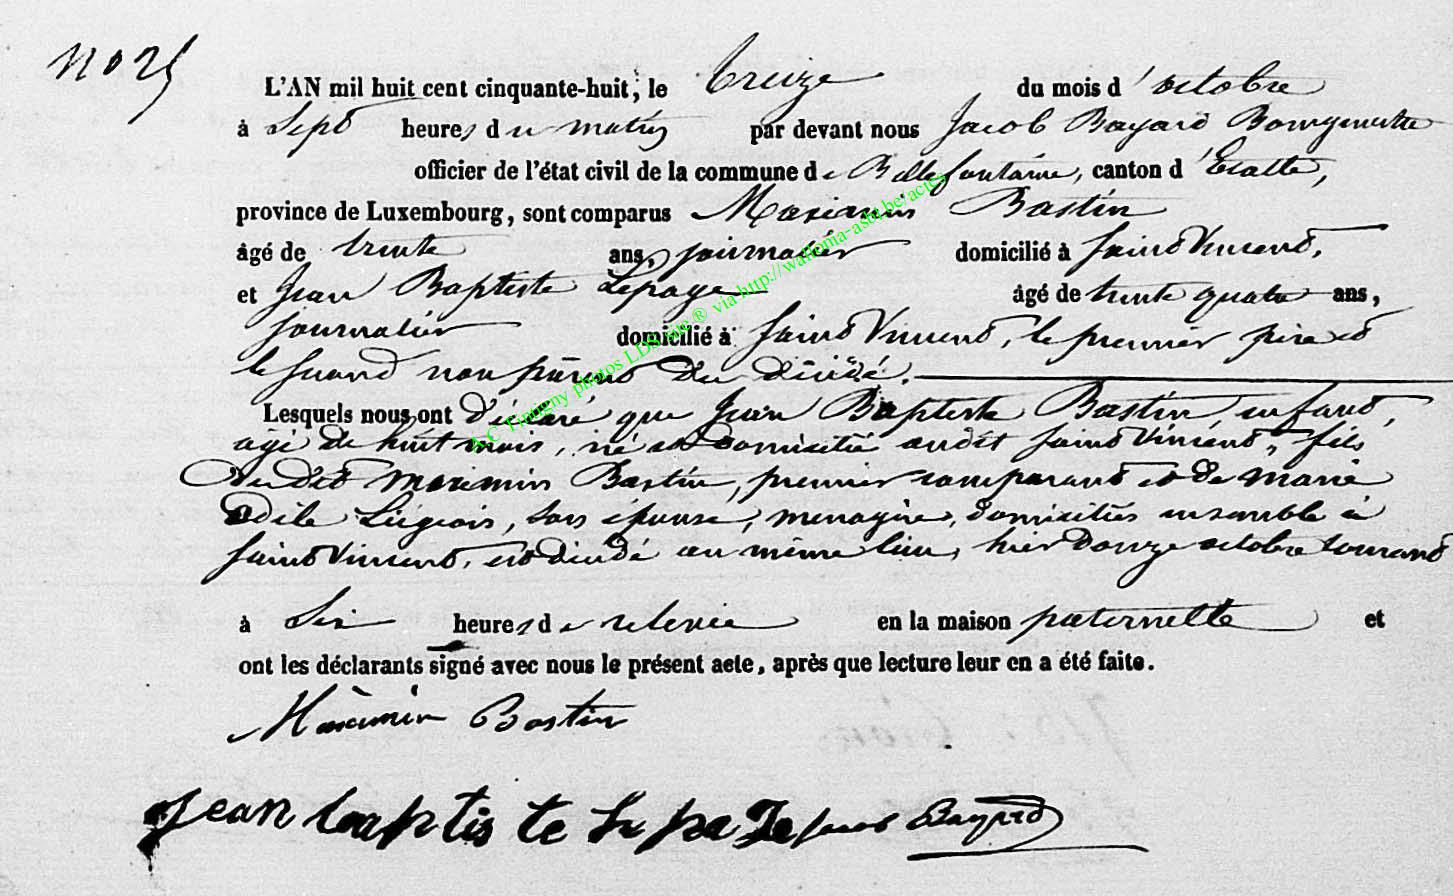 N° 25
L'AN mil huit cent cinquante-huit, le treize du mois d'octobre
à Sept heures du matin par devant nous Jacob Bayard Bourgmestre
officier de l'état civil de la commune de Bellefontaine, canton d'Etalle,
province de Luxembourg, sont comparus Maximin Bastin
âgé de trente ans, journalier domicilié à Saint Vincent,
et Jean Baptiste Lepage âgé de trente quatre ans,
journalier domicilié à Saint Vincent, le premier père et
le second non parent du décédé.
Lesquels nous ont déclaré que Jean Baptiste Bastin enfant
âgé de huit mois, né et domicilié audit Saint Vincent, fils
dudit Maximin Bastin, premier comparant et de Marie
Odile Liégeois, son épouse, ménagère, domiciliés ensemble à
Saint Vincent, est décédé au même lieu, hier douze octobre courant
à Six heures de relevée en la maison paternelle et
ont les déclarants signé avec nous le présent acte, après que lecture leur en a été faite.
Maximin Bastin
Jean baptis te Le pa ge Jacob Bayard
A.C Tintigny photos LDS site ® via http://wallonia-asbl.be/actes